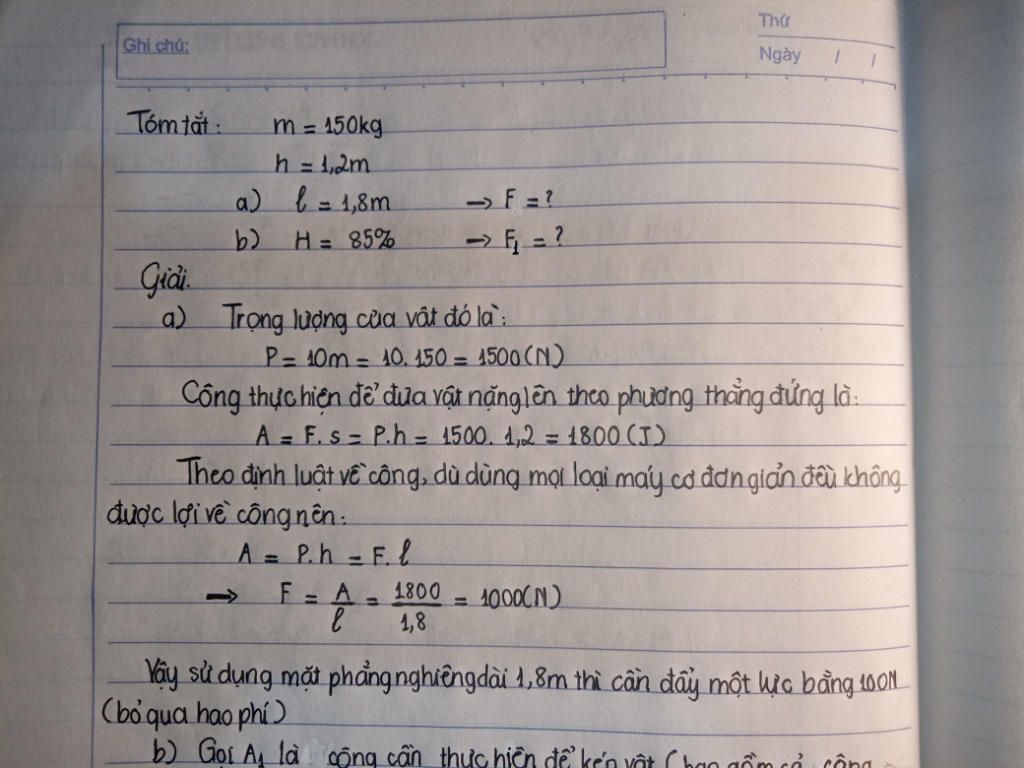 Ghi chú:
Thứ
Ngày / /
Tóm tắt: m = 150kg
h = 1,2m
a) l = 1,8m → F = ?
b) H = 85% → F₁ = ?
Giải.
a) Trọng lượng của vật đó là:
P = 10m = 10. 150 = 1500 (N)
Công thực hiện để đưa vật nặng lên theo phương thẳng đứng là:
A = F. s = P. h = 1500. 1,2 = 1800 (J)
Theo định luật về công, dù dùng mọi loại máy cơ đơn giản đều không
được lợi về công nên:
A = P. h = F. l
→ F = A/l = 1800/1,8 = 1000(N)
Vậy sử dụng mặt phẳng nghiêng dài 1,8m thì cần đẩy một lực bằng 100N
(bỏ qua hao phí)
b) Gọi A₁ là công cần thực hiện để kéo vật (bao gồm cả công